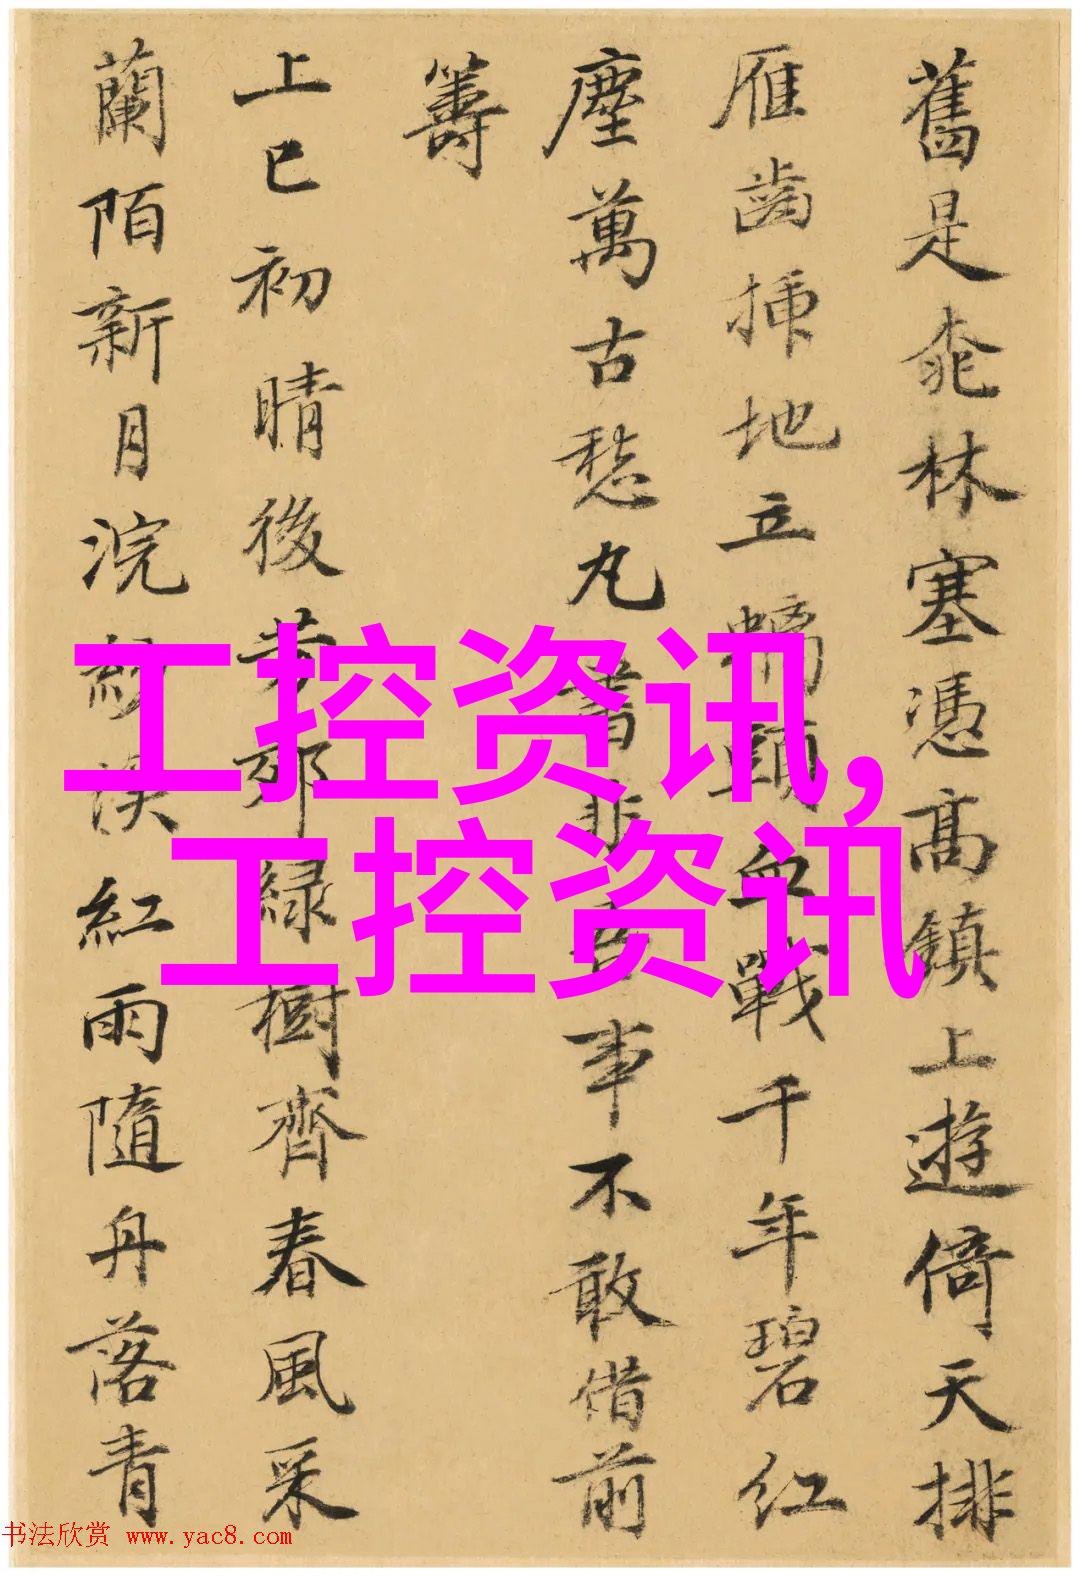 舊是桃林塞憑高鎮上遊倚天排
雁齒插地立螭頭血戰千年碧紅
塵萬古愁丸書非吾事不敢借前
籌
上巳初晴後芳郊綠樹齊春風采
蘭陌新月浣紗溪紅雨隨舟落青
工控资讯,
工控资讯
书法欣赏 www.yac8.com